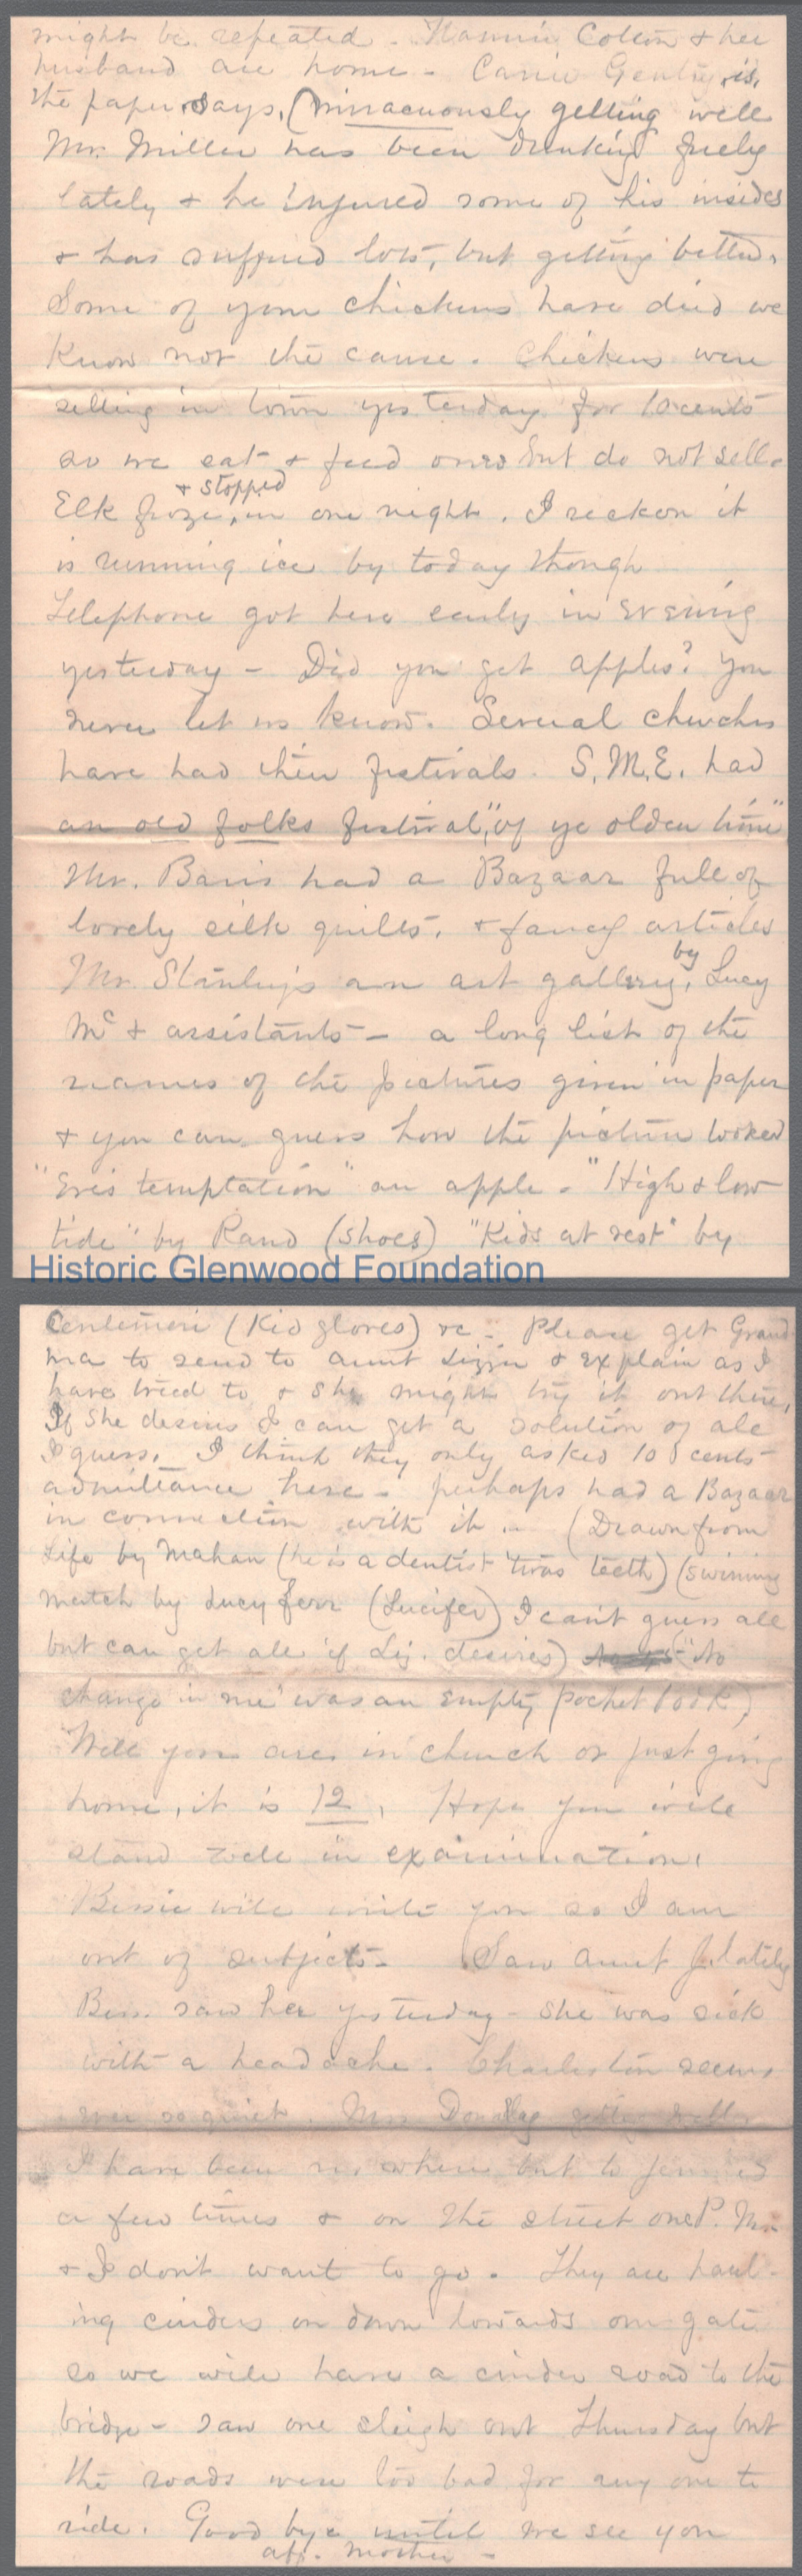 might be repeated - Nannie Cotton & her
husband are home - Carrie Gentry is,
the paper says, (miracuously getting well
Mr. Miller has been drinking freely
lately & he injured some of his insides
& has suffered lots, but getting better.
Some of your chickens have died we
know not the cause. Chickens were
selling in town yesterday for 10 cents
so we eat & feed ours but do not sell.
& stopped
Elk froze, in one night. I reckon it
is running ice by today though
Telephone got here early in evening
yesterday - Did you get apples? you
never let us know. Several churches
have had their festivals. S.M.E. had
an old folks festival, "of ye olden time"
Mr. Bain's had a Bazaar full of
lovely silk quilts, & fancy articles
by
Mr. Stanley's an art gallery, Lucy
Mc & assistants - a long list of the
names of the pictures given in paper
& you can guess how the picture looked
"Eve's temptation" an apple - "High & low
tide" by Rand (shoes) "Kids at rest" by
Historic Glenwood Foundation
Centemeri (Kid gloves) &c - Please get Grand
ma to send to aunt Lizzie & explain as I
have tried to & she might try it out there,
If she desires I can get a solution of all
I guess. I think they only asked 10 cents
admittance here - perhaps had a Bazaar
in connection with it - (Drawn from
Life by Mahan (he is a dentist 'twas teeth) (swiming
match by Lucy Ferr (Lucifer) I can't guess all
but can get all if Liz. desires) ("No
change in me" was an empty pocket book)
Well you are in church or just going
home, it is 12, Hope you will
stand well in examination,
Bessie will write you so I am
out of subjects - Saw aunt J. lately
Bess. saw her yesterday - she was sick
with a headache. Charleston seems
ever so quiet. Mrs
I have been no where but to
a few times & on the street one P. M.
& I don't want to go. They are haul-
ing cinders on down towards our gate
so we will have a cinder road to the
bridge - saw one sleigh out Thursday but
the roads were too bad for any one to
ride. Good bye until we see you
aff. Mother -